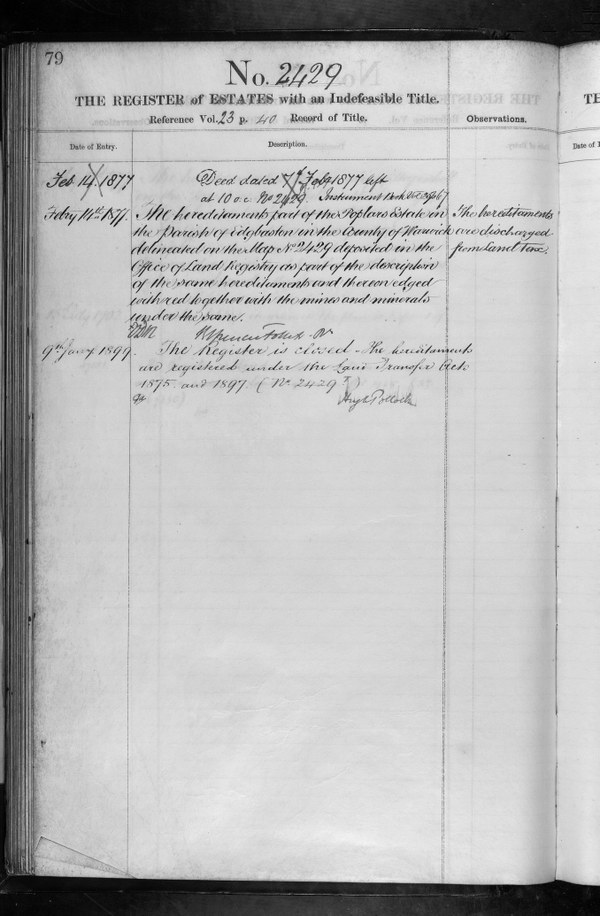 79
No. 2429
THE REGISTER of ESTATES with an Indefeasible Title.
Reference Vol. 23 p. 40 Record of Title.
Observations.
Date of Entry.
Description.
Feb 14. 1877
Deed dated 7 Feby 1877 left
at 10 o.c. No 2429 Instrument Book
Febry 14th 1877.
The hereditaments part of the Poplars Estate in
the Parish of Edgbaston in the County of Warwick
delineated on the Map No 2429 deposited in the
Office of Land Registry as part of the description
of the same hereditaments and thereon edged
with red together with the mines and minerals
under the same.
The hereditaments
are discharged
from Land Tax.
R Spencer Follett
9th Jany 1899.
The Register is closed - The hereditaments
are registered under the Land Transfer Acts
1875 and 1897 (No. 2429
Hugh Pollock
TH
Date of